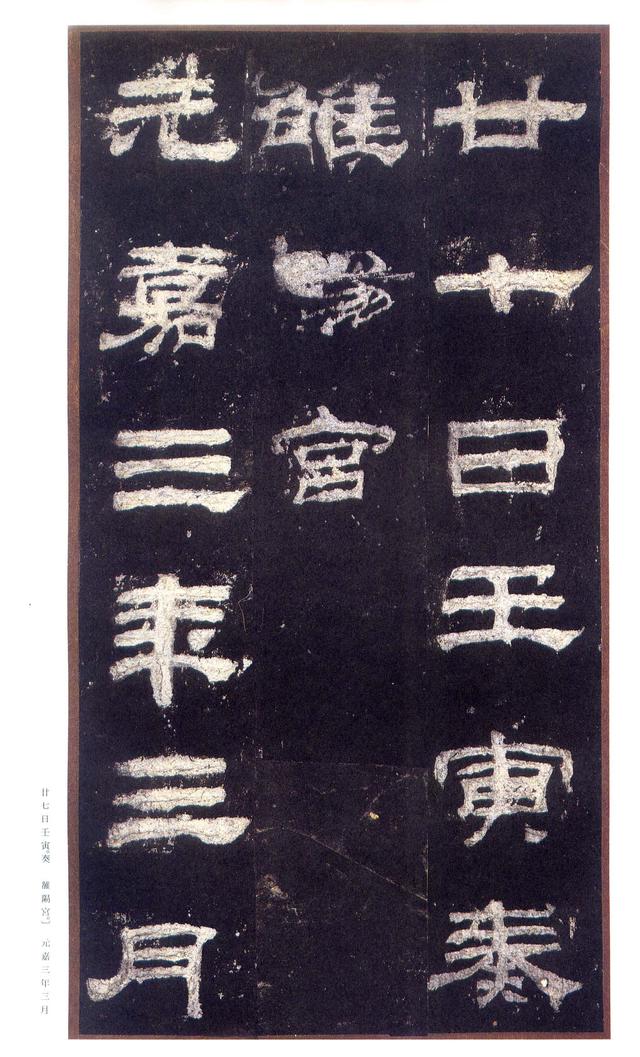 廿七日壬寅奏
雒陽宮
元嘉三年三月
廿七日壬寅。奏 雒陽宮。〕 元嘉三年三月